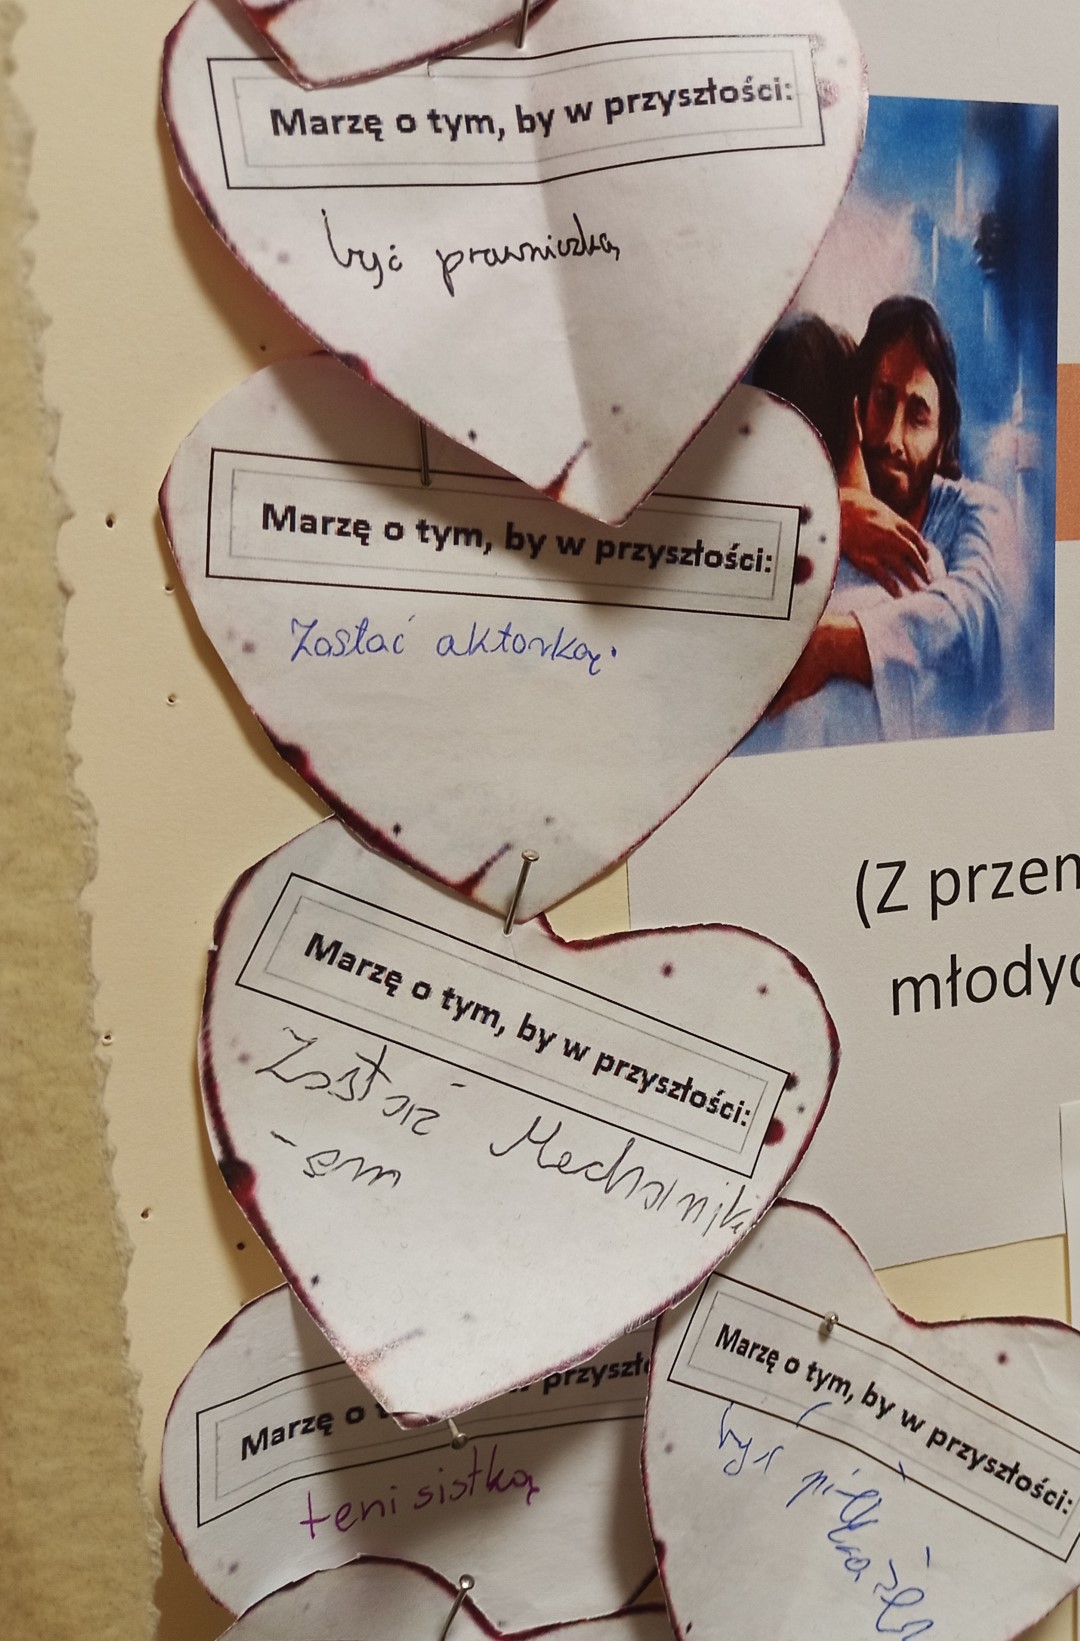 Marzę o tym, by w przyszłości:
być prawniczką
Marzę o tym, by w przyszłości:
Zostać aktorką.
Marzę o tym, by w przyszłości:
Zostać Mechanik
-em
Marzę o t
przyszło
tenisistką
Marzę o tym, by w przyszłości:
być piłkarzem
(Z przem
młodyc